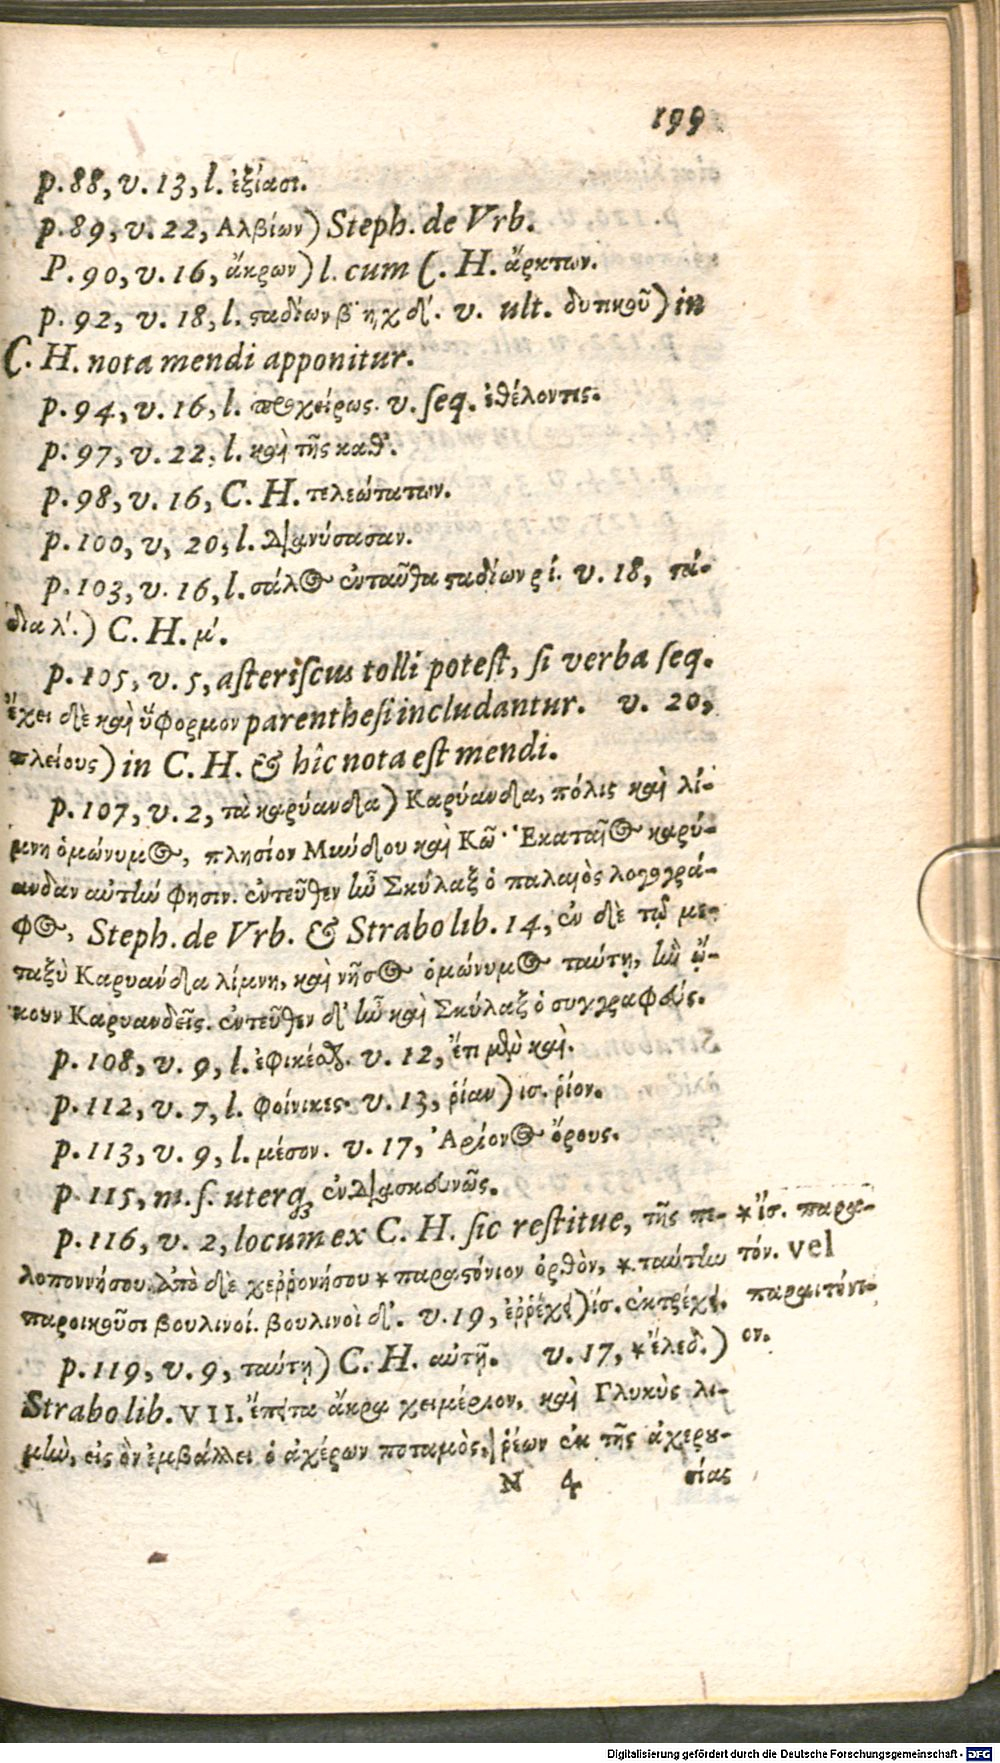 199
p. 88, v. 13, l. ἐξίασι.
p. 89, v. 22, Αλβίων) Steph. de Vrb.
P. 90, v. 16, ἄκρων) l. cum C. H. ἄρκτων.
p. 92, v. 18, l. ϛαδίων β΄ η, χ δ/. v. ult. δυτικοῦ) in
C. H. nota mendi apponitur.
p. 94, v. 16, l. προχείρως. v. seq. ἐθέλοντες.
p. 97, v. 22, l. καὶ τῆς καθ'.
p. 98, v. 16, C. H. τελεώτατων.
p. 100, v, 20, l. διανύσασαν.
p. 103, v. 16, l. σάλος ἐνταῦθα ϛαδίων ρί. v. 18, ϛά-
δια λ΄.) C. H. μ΄.
p. 105, v. 5, asteriscus tolli potest, si verba seq.
ἔχει δὲ καὶ ὕφορμον parenthesi includantur. v. 20,
πλείους) in C. H. & hîc nota est mendi.
p. 107, v. 2, τὰ καρύανδα) Καρύανδα, πόλις καὶ λί-
μνη ὁμώνυμος, πλησίον Μύνδου καὶ Κῶ· Ἑκαταῖος καρύ-
ανδαν αὐτὴν φησιν. ἐντεῦθεν ἦν Σκύλαξ ὁ παλαιὸς λογογρά-
φος, Steph. de Vrb. & Strabo lib. 14, ἐν δὲ τῷ με-
ταξὺ Καρυανδα λίμνη, καὶ νῆσος ὁμώνυμος ταύτῃ, ἣν ᾤ-
κουν Καρυανδεῖς. ἐντεῦθεν δ' ἦν καὶ Σκύλαξ ὁ συγγραφεύς.
p. 108, v. 9, l. ἐφικέσθ. v. 12, ἔτι μὲν καὶ.
p. 112, v. 7, l. Φοίνικες. v. 13, ῥίαν) ισ. ῥίον.
p. 113, v. 9, l. μέσον. v. 17, Ἀρίονος ὄρους.
p. 115, m. s. uterq; ἐνδιασκευῶς.
p. 116, v. 2, locum ex C. H. sic restitue, τῆς πε-
λοποννήσου. Ἀπὸ δὲ χεῤῥονήσου * παραϛόνιον ὀρθὸν, * ταύτην
παροικοῦσι βουλινοί. βουλινοὶ δ'. v. 19, ἐῤῥέχει) ἰσ. ἐκτρέχει.
* ἴσ. παρα-
τόν. vel
παραιτόνι-
ον.
p. 119, v. 9, ταύτῃ) C. H. αὐτῇ. v. 17, * ἔλεδ.)
Strabo lib. VII. ἔπειτα ἄκρα χειμέριον, καὶ Γλυκὺς λι-
μὴν, εἰς ὃν ἐμβάλλει ὁ ἀχέρων ποταμὸς, ῥέων ἐκ τῆς ἀχερου-
N 4 σίας
Digitalisierung gefördert durch die Deutsche Forschungsgemeinschaft - DFG